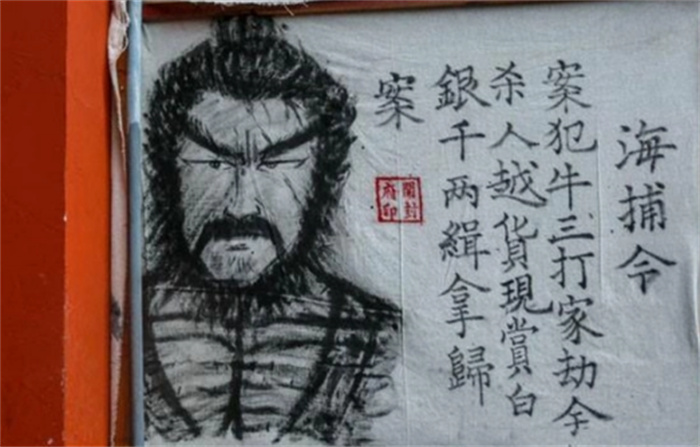 海捕令
案犯牛三打家劫全
杀人越貨現賞白
銀千两緝拿歸
案
開封
府印